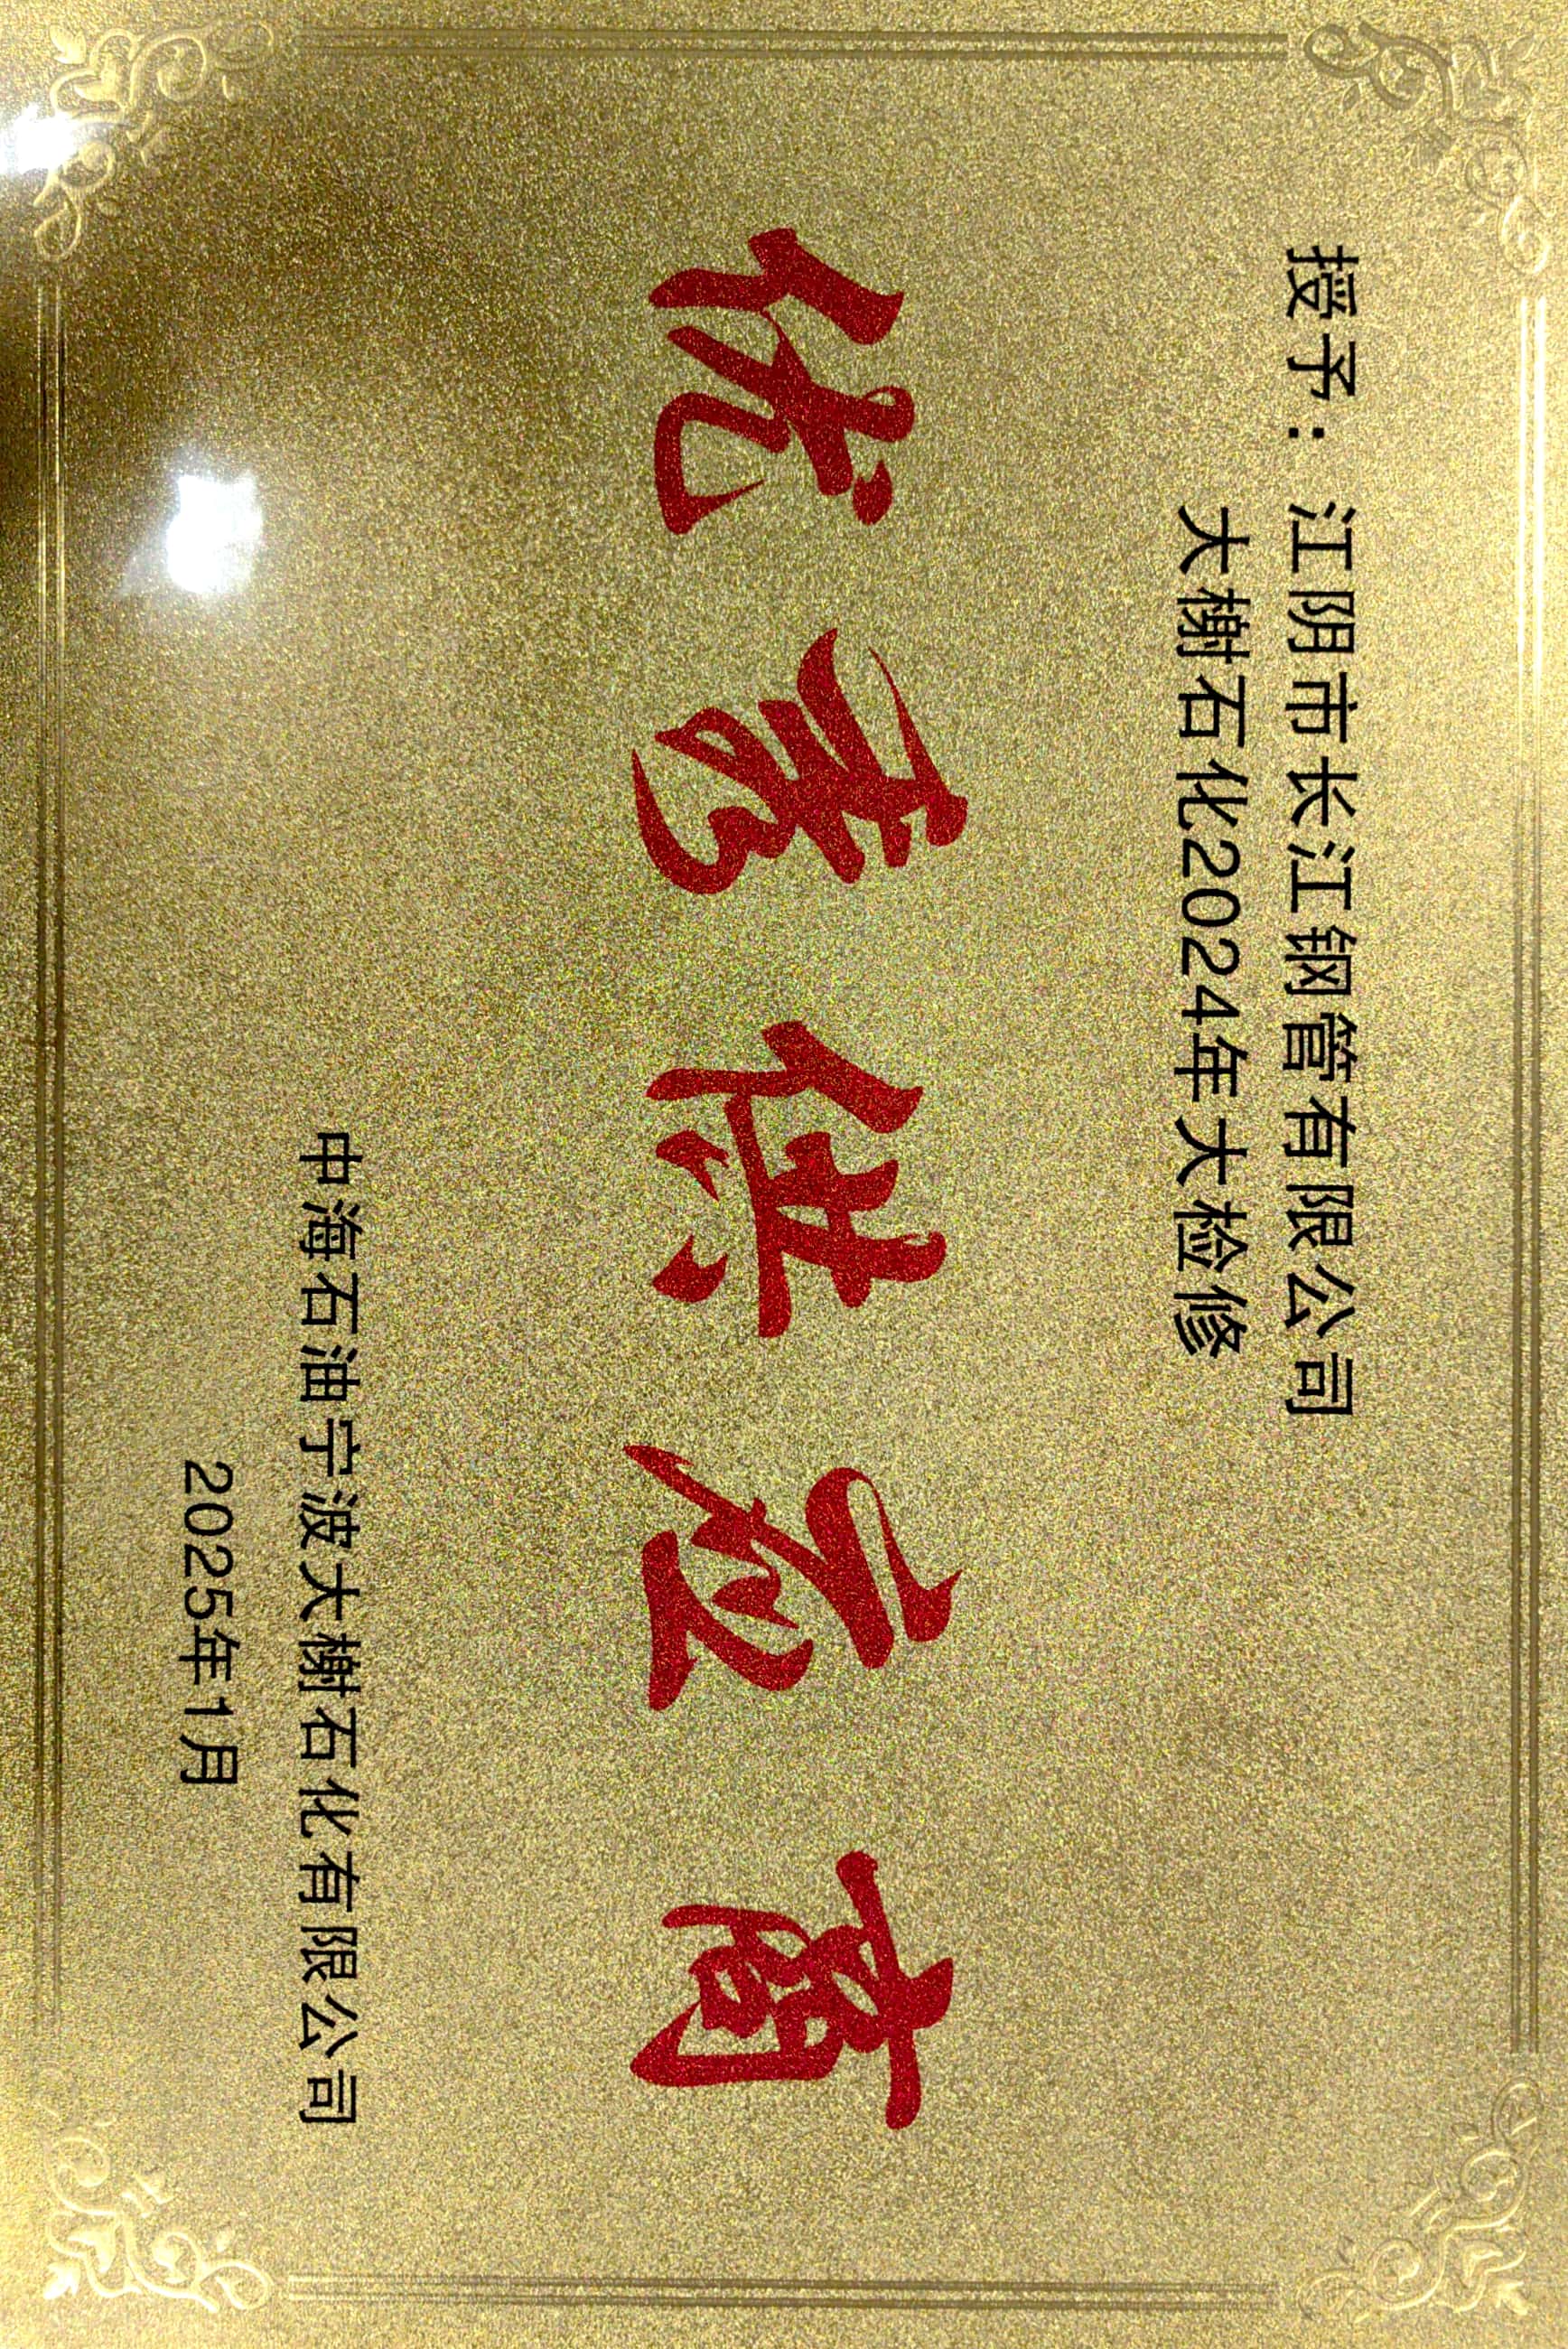 授予：江阴市长江钢管有限公司
大榭石化2024年大检修
优秀供应商
中海石油宁波大榭石化有限公司
2025年1月